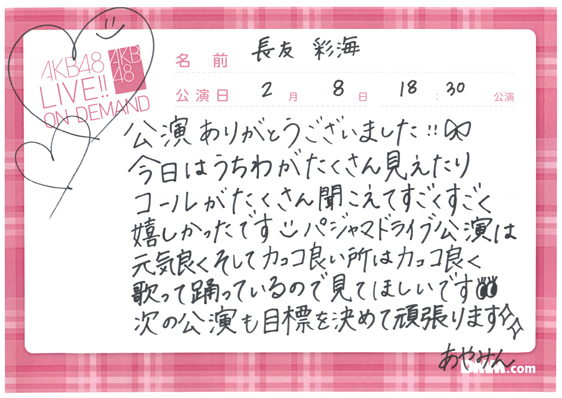 AKB48
LIVE!!
ON DEMAND
AKB
48
名前 長友 彩海
公演日 2月 8日 18:30 公演
公演ありがとうございました!!
今日はうちわがたくさん見えたり
コールがたくさん聞こえてすごくすごく
嬉しかったです パジャマドライブ公演は
元気良くそしてカッコ良い所はカッコ良く
歌って踊っているので見てほしいです
次の公演も目標を決めて頑張ります
あやみん
.com